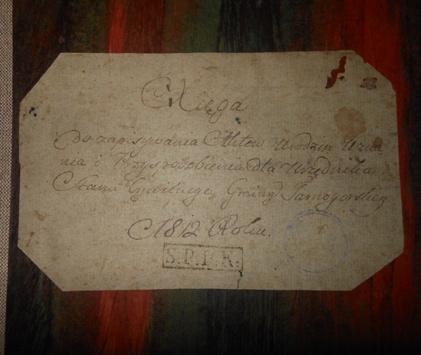 Xięga
Do zapisywania Aktow Urodzin Uzna-
nia i Przysposobienia dla Urzędnika
Stanu Cywilnego Gminy Jamogorskiey
1812 Roku.
S.P.I.R.